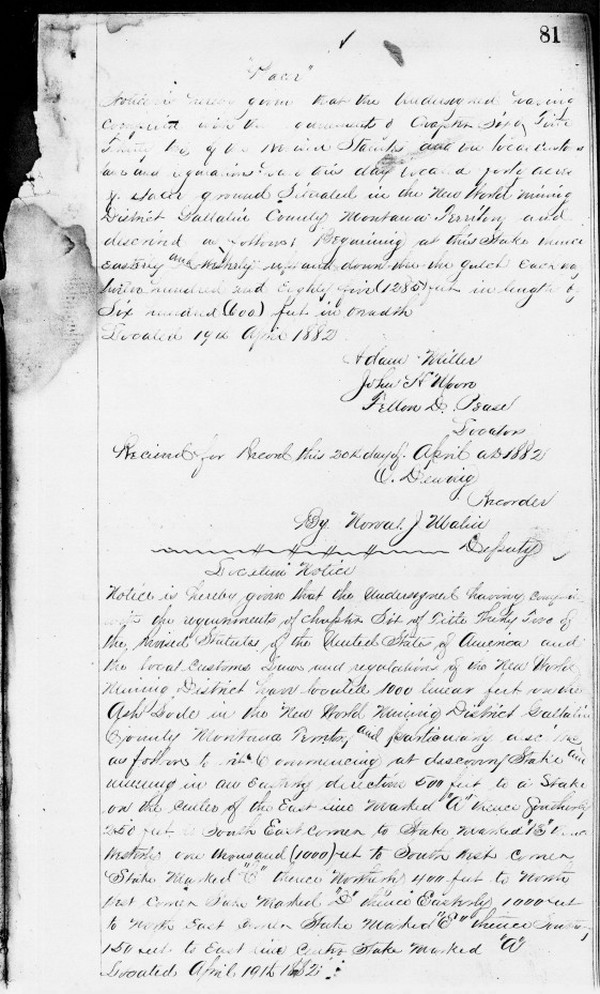 81
"Placer"
Notice is hereby given that the Undersigned having
complied with the requirements of Chapter Six of Title
Thirty Two of the Revised Statutes and the local customs
laws and regulations have this day located forty acres
of placer ground Situated in the New World Mining
District Gallatin County Montana Territory and
described as follows! Beginning at this Stake thence
Easterly and Westerly up and down the gulch Each way
hundred and Eighty five (1285) feet in length by
Six hundred (600) feet in breadth
Located 19th April 1882
Adam Miller
John H Moore
Fellon D. Pease
Locators
Recieved for Record this 20th day of April AD 1882
O. Recorder
By Norval J Malin
Deputy
Location Notice
Notice is hereby given that the Undersigned having complied
with the requirements of Chapter Six of Title Thirty Two of
the Revised Statutes of the United States of America and
the local Customs Laws and regulations of the New World
Mining District have located 1000 linear feet on the
Ash Lode in the New World Mining District Gallatin
County Montana Territory and particularly described
as follows to wit Commencing at discovery Stake and
running in an Easterly direction 500 feet to a Stake
on the center of the East line Marked "A" thence Southerly
250 feet to South East corner to Stake Marked "B" thence
Westerly one thousand (1000) feet to South West corner
Stake Marked "C" thence Northerly 400 feet to North
West corner Stake Marked "D" thence Easterly 1000 feet
to North East corner Stake Marked "E" thence Southerly
150 feet to East line Center Stake Marked "A"
Located April 19th 1882